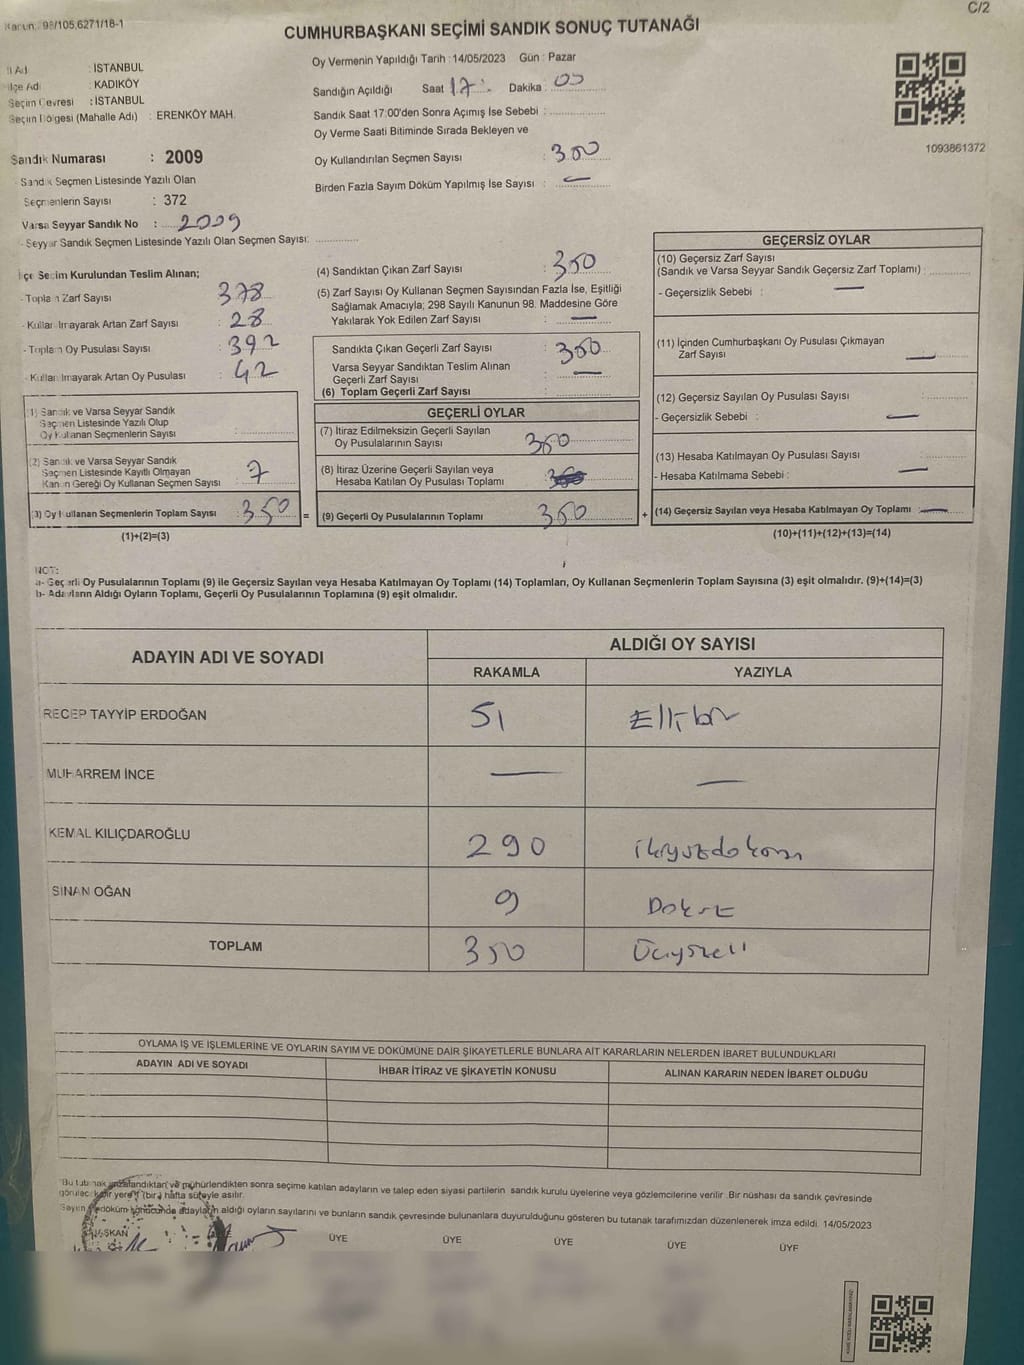 C/2
Kanun: 98/105,6271/18-1
CUMHURBAŞKANI SEÇİMİ SANDIK SONUÇ TUTANAĞI
İl Adı : İSTANBUL
İlçe Adı : KADIKÖY
Seçim Çevresi : İSTANBUL
Seçim Bölgesi (Mahalle Adı) : ERENKÖY MAH.
Sandık Numarası : 2009
- Sandık Seçmen Listesinde Yazılı Olan
Seçmenlerin Sayısı : 372
Varsa Seyyar Sandık No : 2009
- Seyyar Sandık Seçmen Listesinde Yazılı Olan Seçmen Sayısı:
Oy Vermenin Yapıldığı Tarih : 14/05/2023 Gün : Pazar
Sandığın Açıldığı Saat 17 Dakika : 00
Sandık Saat 17:00'den Sonra Açımış İse Sebebi :
Oy Verme Saati Bitiminde Sırada Bekleyen ve
Oy Kullandırılan Seçmen Sayısı : 350
Birden Fazla Sayım Döküm Yapılmış İse Sayısı : —
1093861372
İlçe Seçim Kurulundan Teslim Alınan;
- Toplam Zarf Sayısı : 378
- Kullanılmayarak Artan Zarf Sayısı : 28
- Toplam Oy Pusulası Sayısı : 392
- Kullanılmayarak Artan Oy Pusulası : 42
(1) Sandık ve Varsa Seyyar Sandık
Seçmen Listesinde Yazılı Olup
Oy Kullanan Seçmenlerin Sayısı :
(2) Sandık ve Varsa Seyyar Sandık
Seçmen Listesinde Kayıtlı Olmayan
Kanun Gereği Oy Kullanan Seçmen Sayısı : 7
(3) Oy Kullanan Seçmenlerin Toplam Sayısı : 350 =
(1)+(2)=(3)
(4) Sandıktan Çıkan Zarf Sayısı : 350
(5) Zarf Sayısı Oy Kullanan Seçmen Sayısından Fazla İse, Eşitliği
Sağlamak Amacıyla; 298 Sayılı Kanunun 98. Maddesine Göre
Yakılarak Yok Edilen Zarf Sayısı : —
Sandıkta Çıkan Geçerli Zarf Sayısı : 350
Varsa Seyyar Sandıktan Teslim Alınan
Geçerli Zarf Sayısı : —
(6) Toplam Geçerli Zarf Sayısı :
GEÇERLİ OYLAR
(7) İtiraz Edilmeksizin Geçerli Sayılan
Oy Pusulalarının Sayısı : 350
(8) İtiraz Üzerine Geçerli Sayılan veya
Hesaba Katılan Oy Pusulası Toplamı :
(9) Geçerli Oy Pusulalarının Toplamı : 350 +
GEÇERSİZ OYLAR
(10) Geçersiz Zarf Sayısı
(Sandık ve Varsa Seyyar Sandık Geçersiz Zarf Toplamı) :
- Geçersizlik Sebebi : —
(11) İçinden Cumhurbaşkanı Oy Pusulası Çıkmayan
Zarf Sayısı : —
(12) Geçersiz Sayılan Oy Pusulası Sayısı :
- Geçersizlik Sebebi : —
(13) Hesaba Katılmayan Oy Pusulası Sayısı :
- Hesaba Katılmama Sebebi : —
(14) Geçersiz Sayılan veya Hesaba Katılmayan Oy Toplamı : —
(10)+(11)+(12)+(13)=(14)
NOT:
a- Geçerli Oy Pusulalarının Toplamı (9) ile Geçersiz Sayılan veya Hesaba Katılmayan Oy Toplamı (14) Toplamları, Oy Kullanan Seçmenlerin Toplam Sayısına (3) eşit olmalıdır. (9)+(14)=(3)
b- Adayların Aldığı Oyların Toplamı, Geçerli Oy Pusulalarının Toplamına (9) eşit olmalıdır.
ADAYIN ADI VE SOYADI
ALDIĞI OY SAYISI
RAKAMLA YAZIYLA
RECEP TAYYİP ERDOĞAN 51 Ellibir
MUHARREM İNCE — —
KEMAL KILIÇDAROĞLU 290 ikiyüzdoksan
SİNAN OĞAN 9 Dokuz
TOPLAM 350 Üçyüzelli
OYLAMA İŞ VE İŞLEMLERİNE VE OYLARIN SAYIM VE DÖKÜMÜNE DAİR ŞİKAYETLERLE BUNLARA AİT KARARLARIN NELERDEN İBARET BULUNDUKLARI
ADAYIN ADI VE SOYADI İHBAR İTİRAZ VE ŞİKAYETİN KONUSU ALINAN KARARIN NEDEN İBARET OLDUĞU
Bu tutanak imzalandıktan ve mühürlendikten sonra seçime katılan adayların ve talep eden siyasi partilerin sandık kurulu üyelerine veya gözlemcilerine verilir. Bir nüshası da sandık çevresinde
görülecek bir yere 1 (bir) hafta süreyle asılır.
Sayım döküm sonucunda adayların aldığı oyların sayılarını ve bunların sandık çevresinde bulunanlara duyurulduğunu gösteren bu tutanak tarafımızdan düzenlenerek imza edildi. 14/05/2023
BAŞKAN ÜYE ÜYE ÜYE ÜYE ÜYE